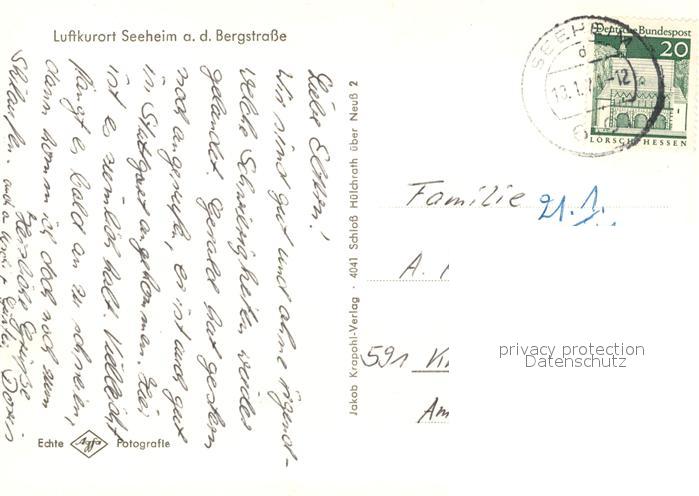 Luftkurort Seeheim a. d. Bergstraße
Liebe Eltern!
Wir sind gut und ohne irgend-
welche Schwierigkeiten wieder
gelandet. Gerald hat gestern
noch angerufen, er ist auch gut
in Stuttgart angekommen. Hier
ist es ziemlich kalt. Vielleicht
fängt es bald an zu schneien,
dann komm ich doch noch zum
Skilaufen.
Herzliche Grüße
Doris
Echte Agfa Fotografie
Jakob Krapohl-Verlag · 4041 Schloß Hülchrath über Neuß 2
SEEHEIM
d
13.1.71-12
Deutsche Bundespost
20
LORSCH/HESSEN
Familie
21.1.
A.
591 K
Am
privacy protection
Datenschutz